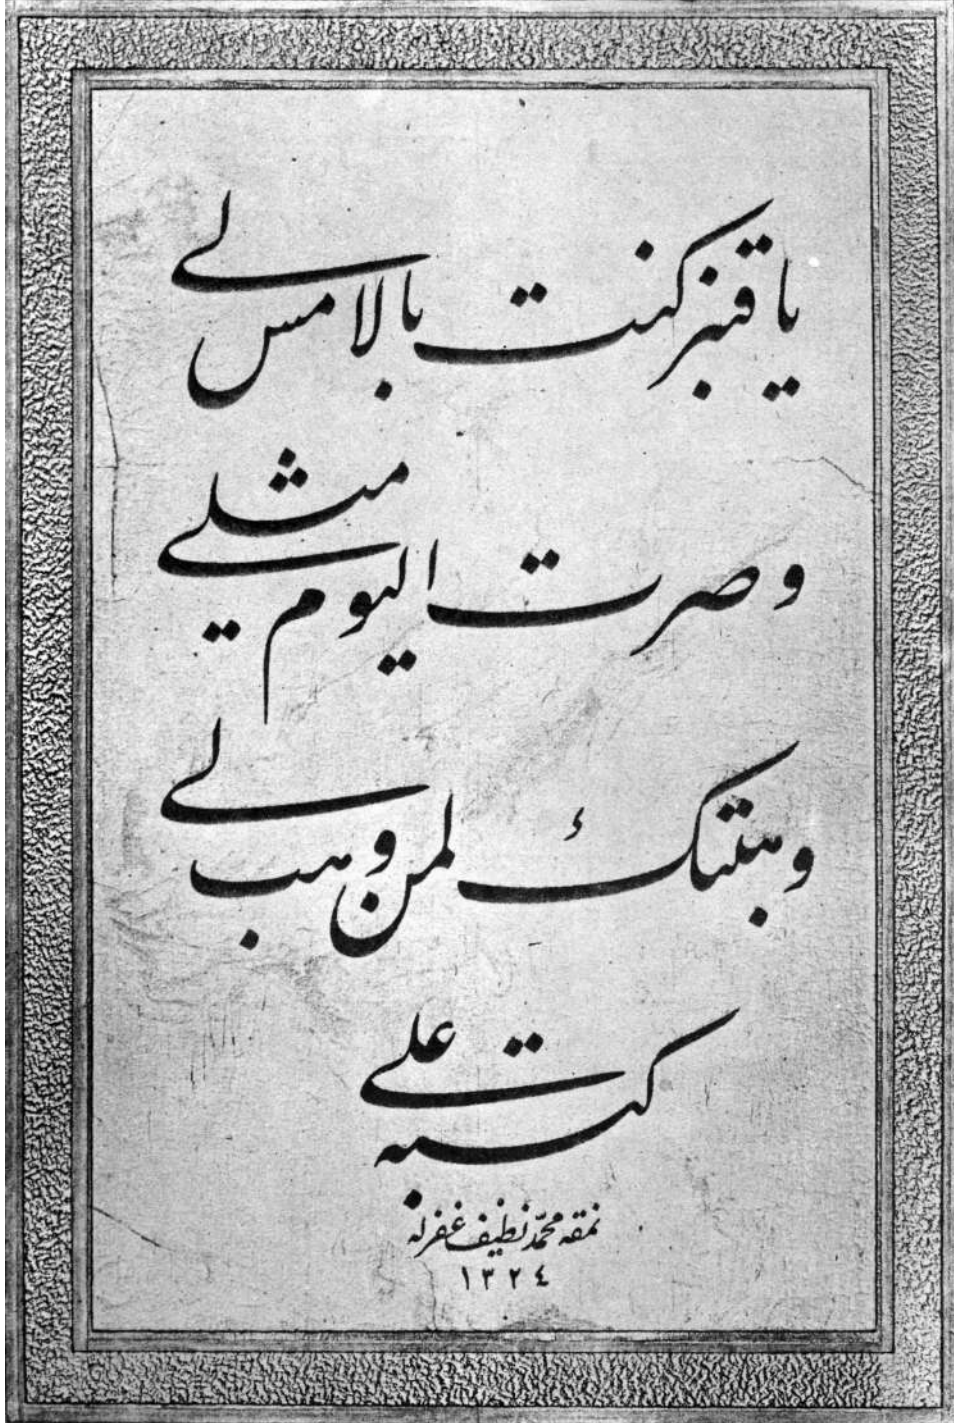 يا قنبر كنت بالامس لي
وصرت اليوم مثلي
وهبتك لمن وهب لي
كتبه علي
نمقه محمد نظيف غفرله
١٣٢٤